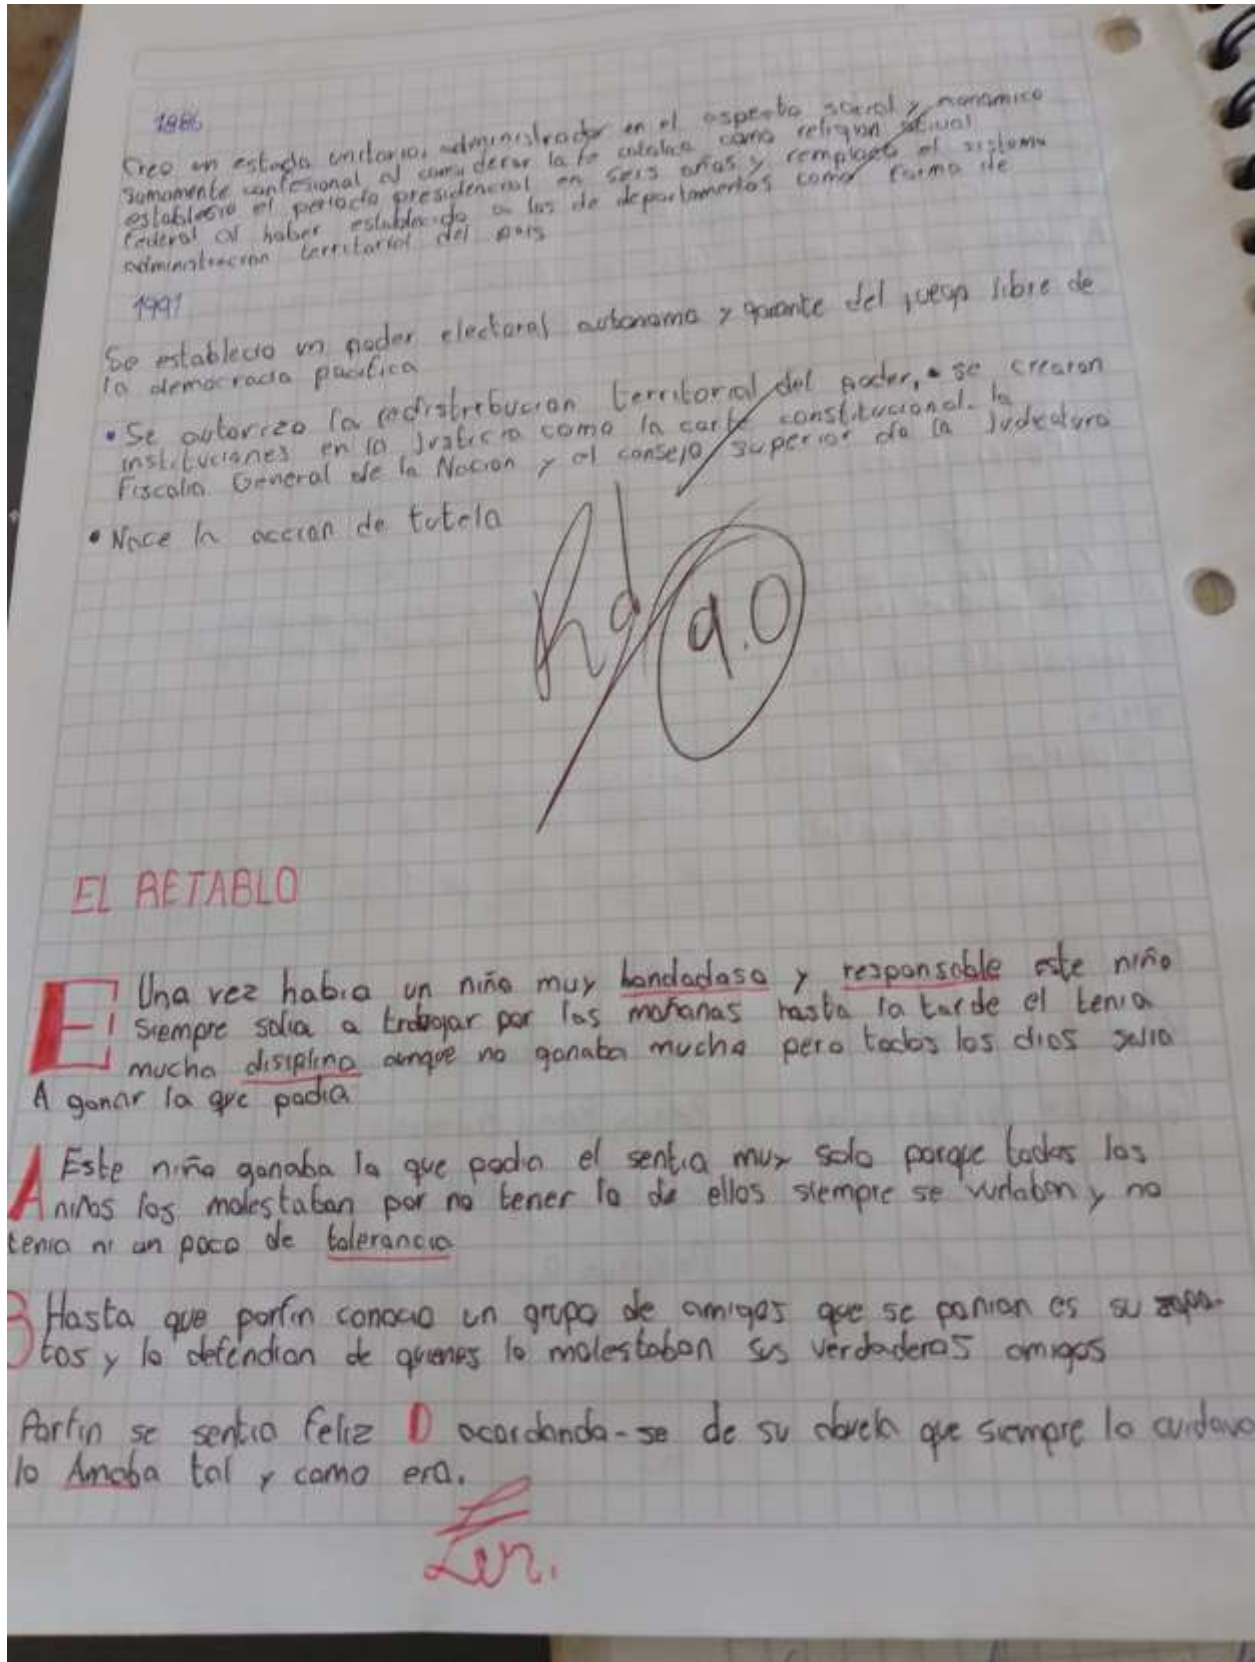 1986
Creo un estado unitario, administrador en el aspecto social y
Sumamente confesional al considerar la fe catolica como religion
establecio el periodo presidencial en seis años y remplaco el sistema
federal al haber establecido a los de departamentos como forma de
administracion territorial del pais
1991
Se establecio un poder electoral autonomo y garante del juego libre de
la democracia pacifica
• Se autorizo la redistribucion territorial del poder, • se crearon
instituciones en la Justicia como la corte constitucional. la
Fiscalia General de la Nacion y el consejo superior de la Judicatura
• Nace la accion de tutela
9.0
EL RETABLO
E Una vez habia un niño muy bondadoso y responsable este niño
siempre salia a trabajar por las mañanas hasta la tarde el tenia
mucha disiplina aunque no ganaba mucho pero todos los dias salia
A ganar lo que podia
A Este niño ganaba lo que podia el sentia muy solo porque todos los
niños los molestaban por no tener lo de ellos siempre se vurlaban y no
tenia ni un poco de tolerancia
B Hasta que porfin conocio un grupo de amigos que se ponian es su zapa-
tos y lo defendian de quienes lo molestaban sus verdaderos amigos
Porfin se sentia feliz D acordando-se de su abuela que siempre lo cuidava
lo Amaba tal y como era.
Fin.